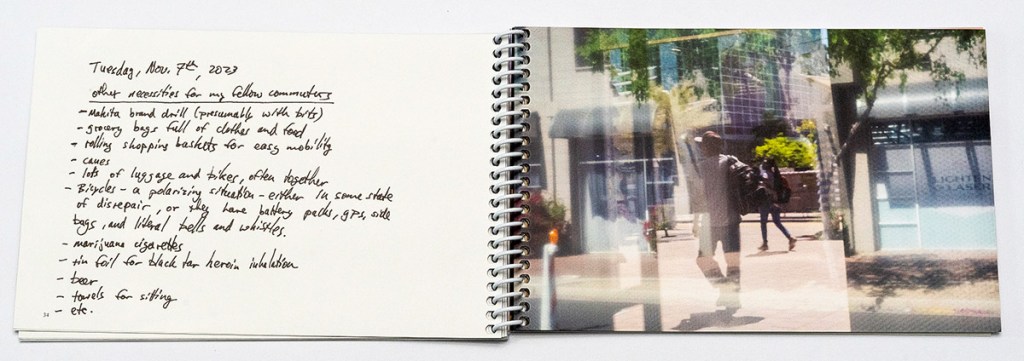 Tuesday, Nov. 7th, 2023
other necessities for my fellow commuters
- Makita brand drill (presumable with bits)
- grocery bags full of clothes and food
- rolling shopping baskets for easy mobility
- canes
- lots of luggage and bikes, often together
- Bicycles - a polarizing situation - either in some state
of disrepair, or they have battery packs, gps, side
bags, and literal bells and whistles.
- marijuana cigarettes
- tin foil for black tar heroin inhalation
- beer
- towels for sitting
- etc.
34
LIGHTEN